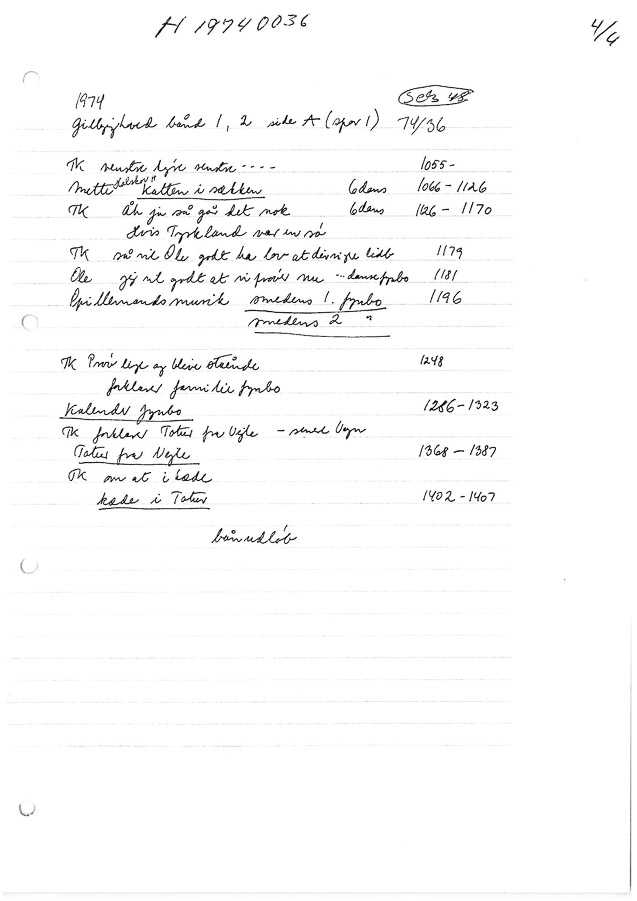 H 19740036
4/4
1974
side A (spor 1) bånd 1, 2 74/36
TK venstre højre venstre ---- 1055-
Mette "Katten i sækken 6dans 1066-1126
TK Åh ja så går det nok 6dans 1126-1170
Hvis Tyrkland var en sø
TK så vil Ole godt ha lov at 1179
Ole jeg vil godt at vi prøver nu 1181
Spillemandsmusik smedens 1. fynbo 1196
smedens 2 "
TK Prøv lige og blive stående 1248
forklarer familie fynbo
Kalender fynbo 1286-1323
TK forklarer Totur fra Vejle
Totur fra Vejle 1368-1387
TK om at i kæde
kæde i Totur 1402-1407
bånudløb